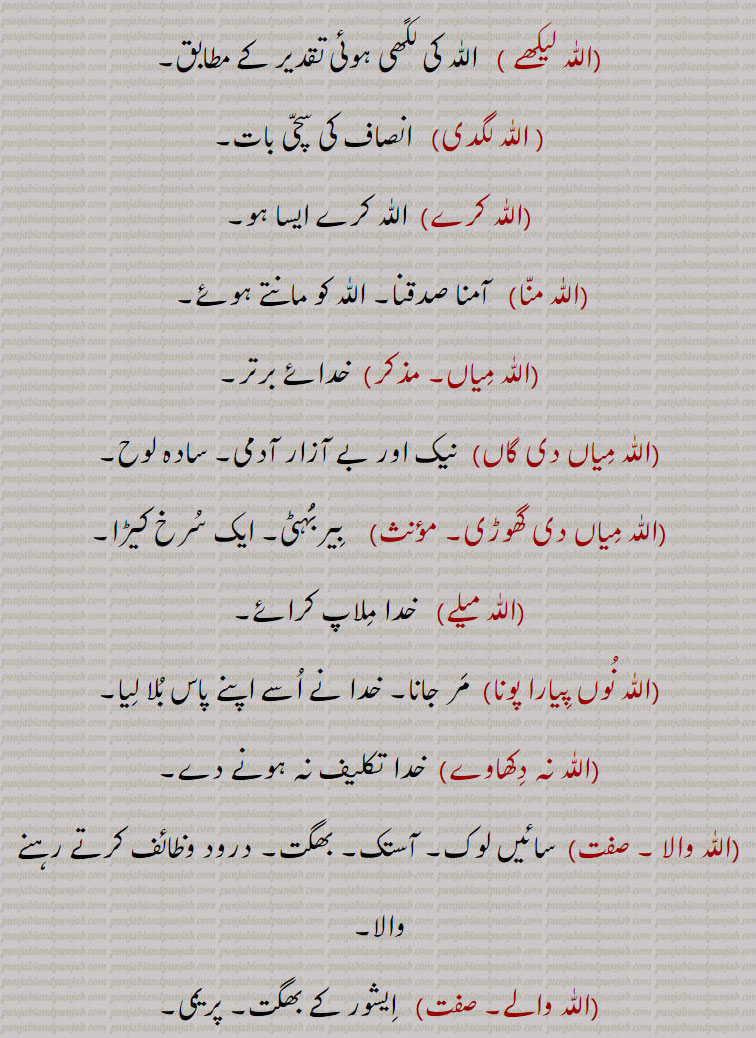 (اللہ لیکھے ) اللہ کی لکّھی ہوئی تقدیر کے مطابق۔
( اللہ لگدی) انصاف کی سچّی بات۔
(اللہ کرے) اللہ کرے ایسا ہو۔
(اللہ منّا) آمنا صدقنا۔ اللہ کو مانتے ہوئے۔
(اللہ مِیاں۔ مذکر) خدائے برتر۔
(اللہ مِیاں دی گاں) نیک اور بے آزار آدمی۔ سادہ لوح۔
(اللہ مِیاں دی گھوڑی۔ مؤنث) بِیر بُہٹی۔ ایک سُرخ کیڑا۔
(اللہ میلے) خدا مِلاپ کرائے۔
(اللہ نُوں پِیارا پونا) مَر جانا۔ خدا نے اُسے اپنے پاس بُلا لِیا۔
(اللہ نہ دِکھاوے) خدا تکلیف نہ ہونے دے۔
(اللہ والا ۔ صفت) سائیں لوک۔ آستک۔ بھگت۔ درود وظائف کرتے رہنے
والا۔
(اللہ والے۔ صفت) اِیشور کے بھگت۔ پریمی۔